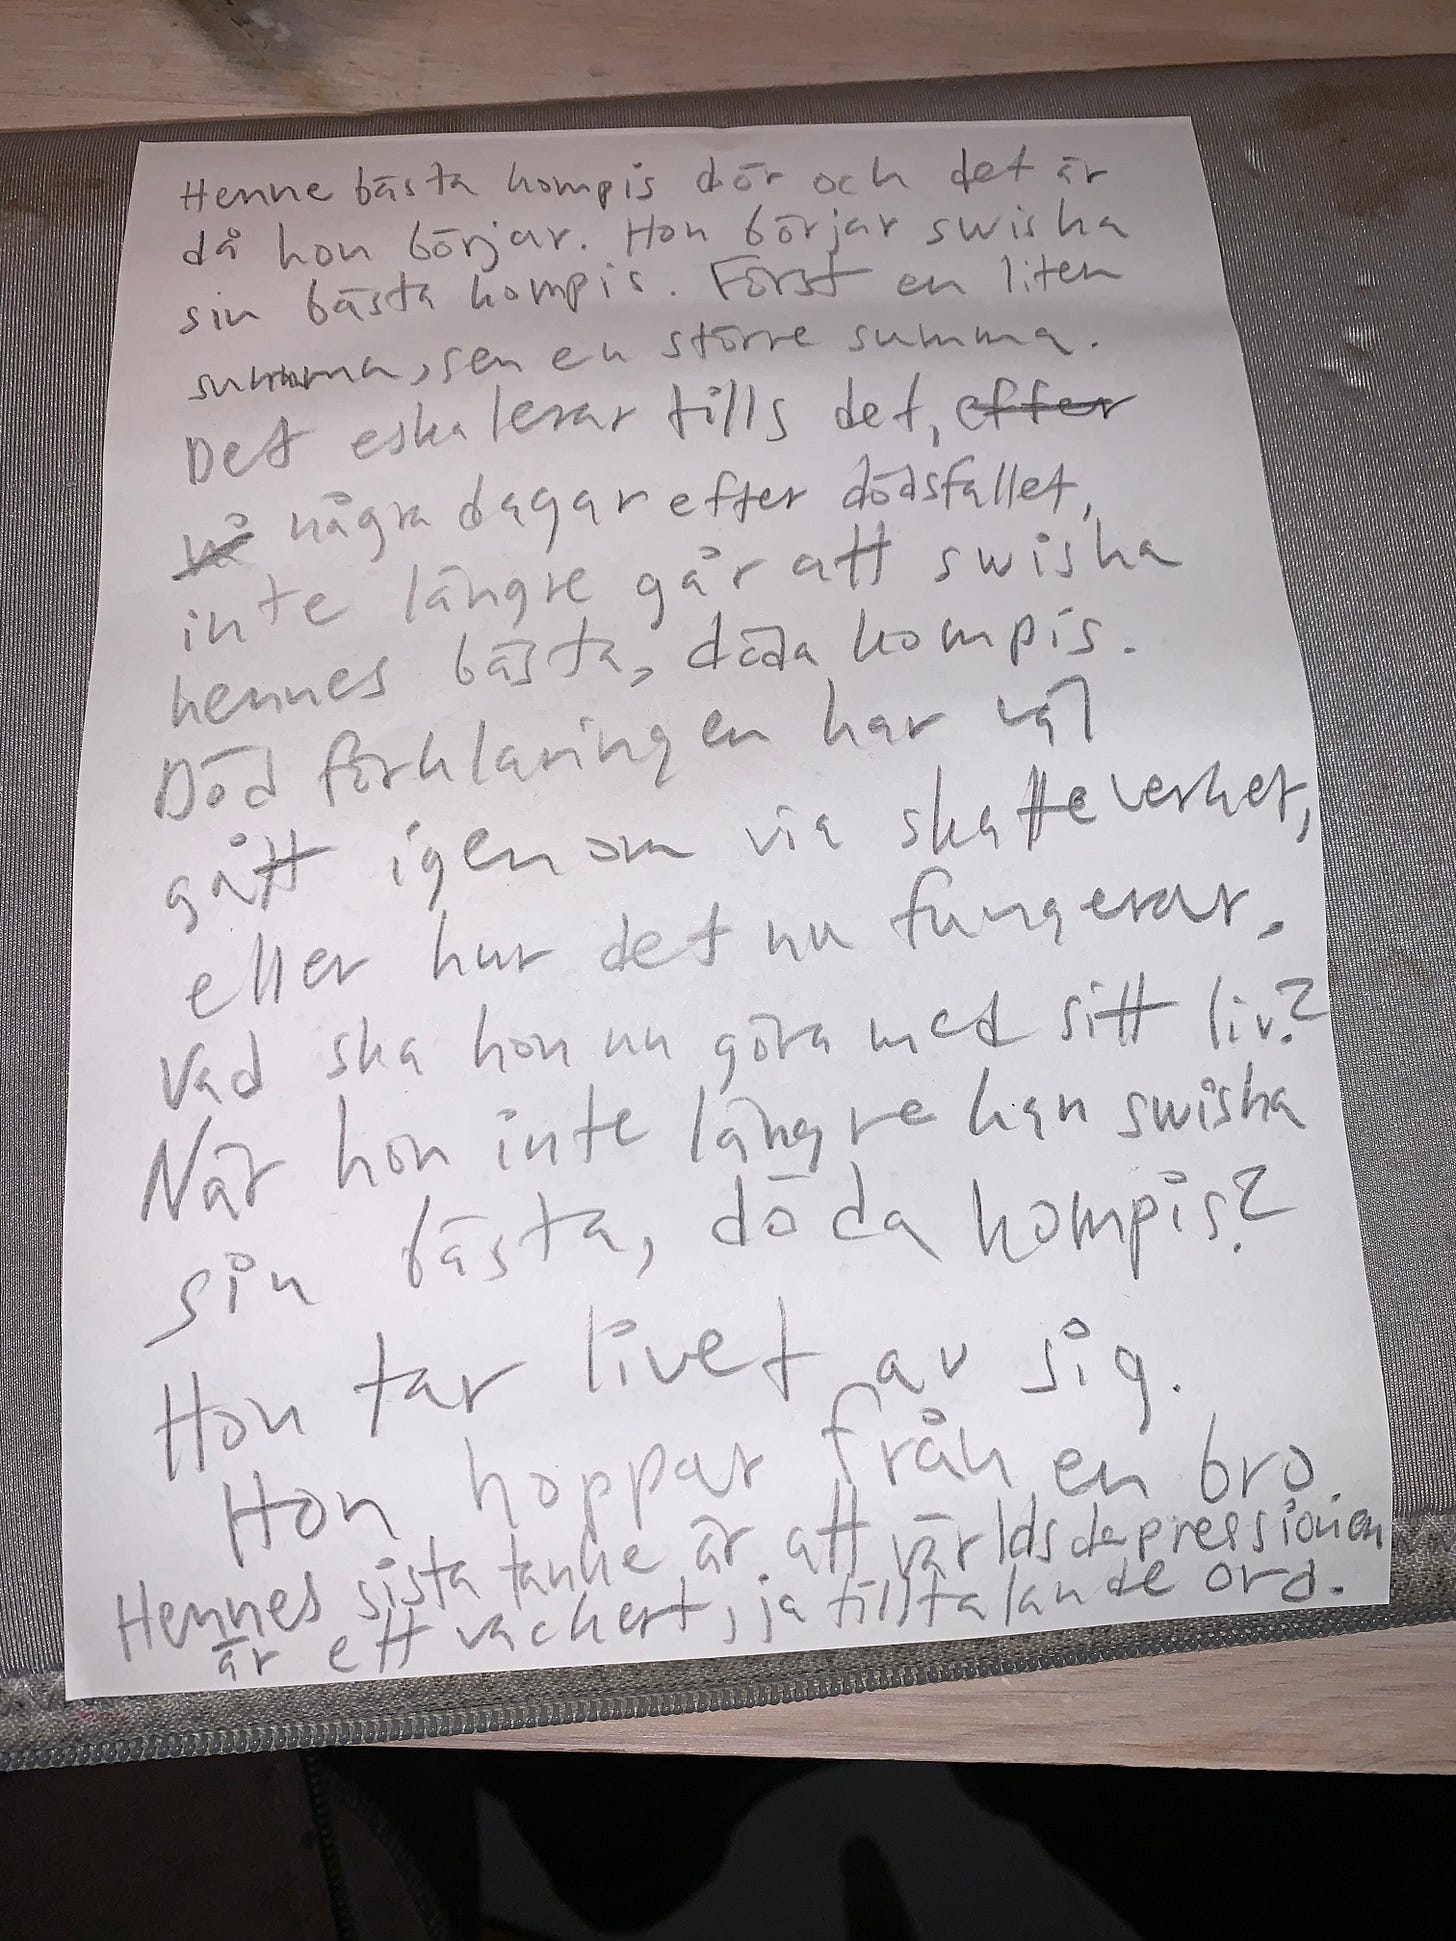 Henne bästa kompis dör och det är
då hon börjar. Hon börjar swisha
sin bästa kompis. Först en liten
summa, sen en större summa.
Det eskalerar tills det, efter
nå några dagar efter dödsfallet,
inte längre går att swisha
hennes bästa, döda kompis.
Död förklaringen har väl
gått igenom via skatteverket,
eller hur det nu fungerar.
Vad ska hon nu göra med sitt liv?
När hon inte längre kan swisha
sin bästa, döda kompis?
Hon tar livet av sig.
Hon hoppar från en bro.
Hennes sista tanke är att världsdepressionen
är ett vackert, ja tilltalande ord.